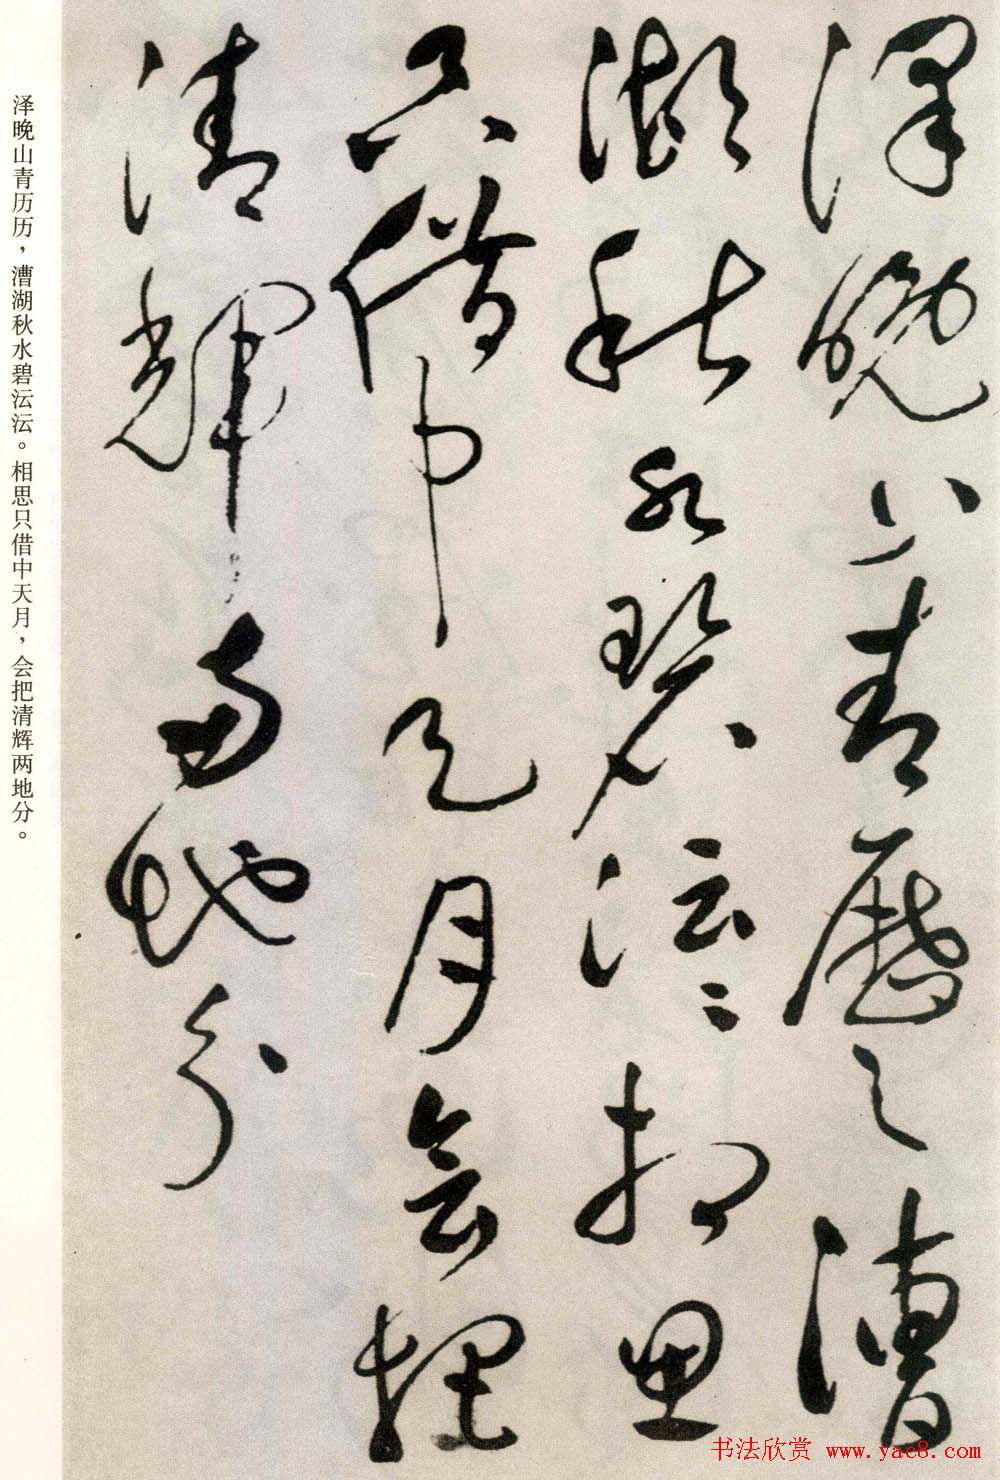 澤晚山青歷〻漕
湖秋水碧沄〻相思
只借中天月會把
清輝兩地分
泽晚山青历历，漕湖秋水碧沄沄。相思只借中天月，会把清辉两地分。
书法欣赏 www.yac8.com